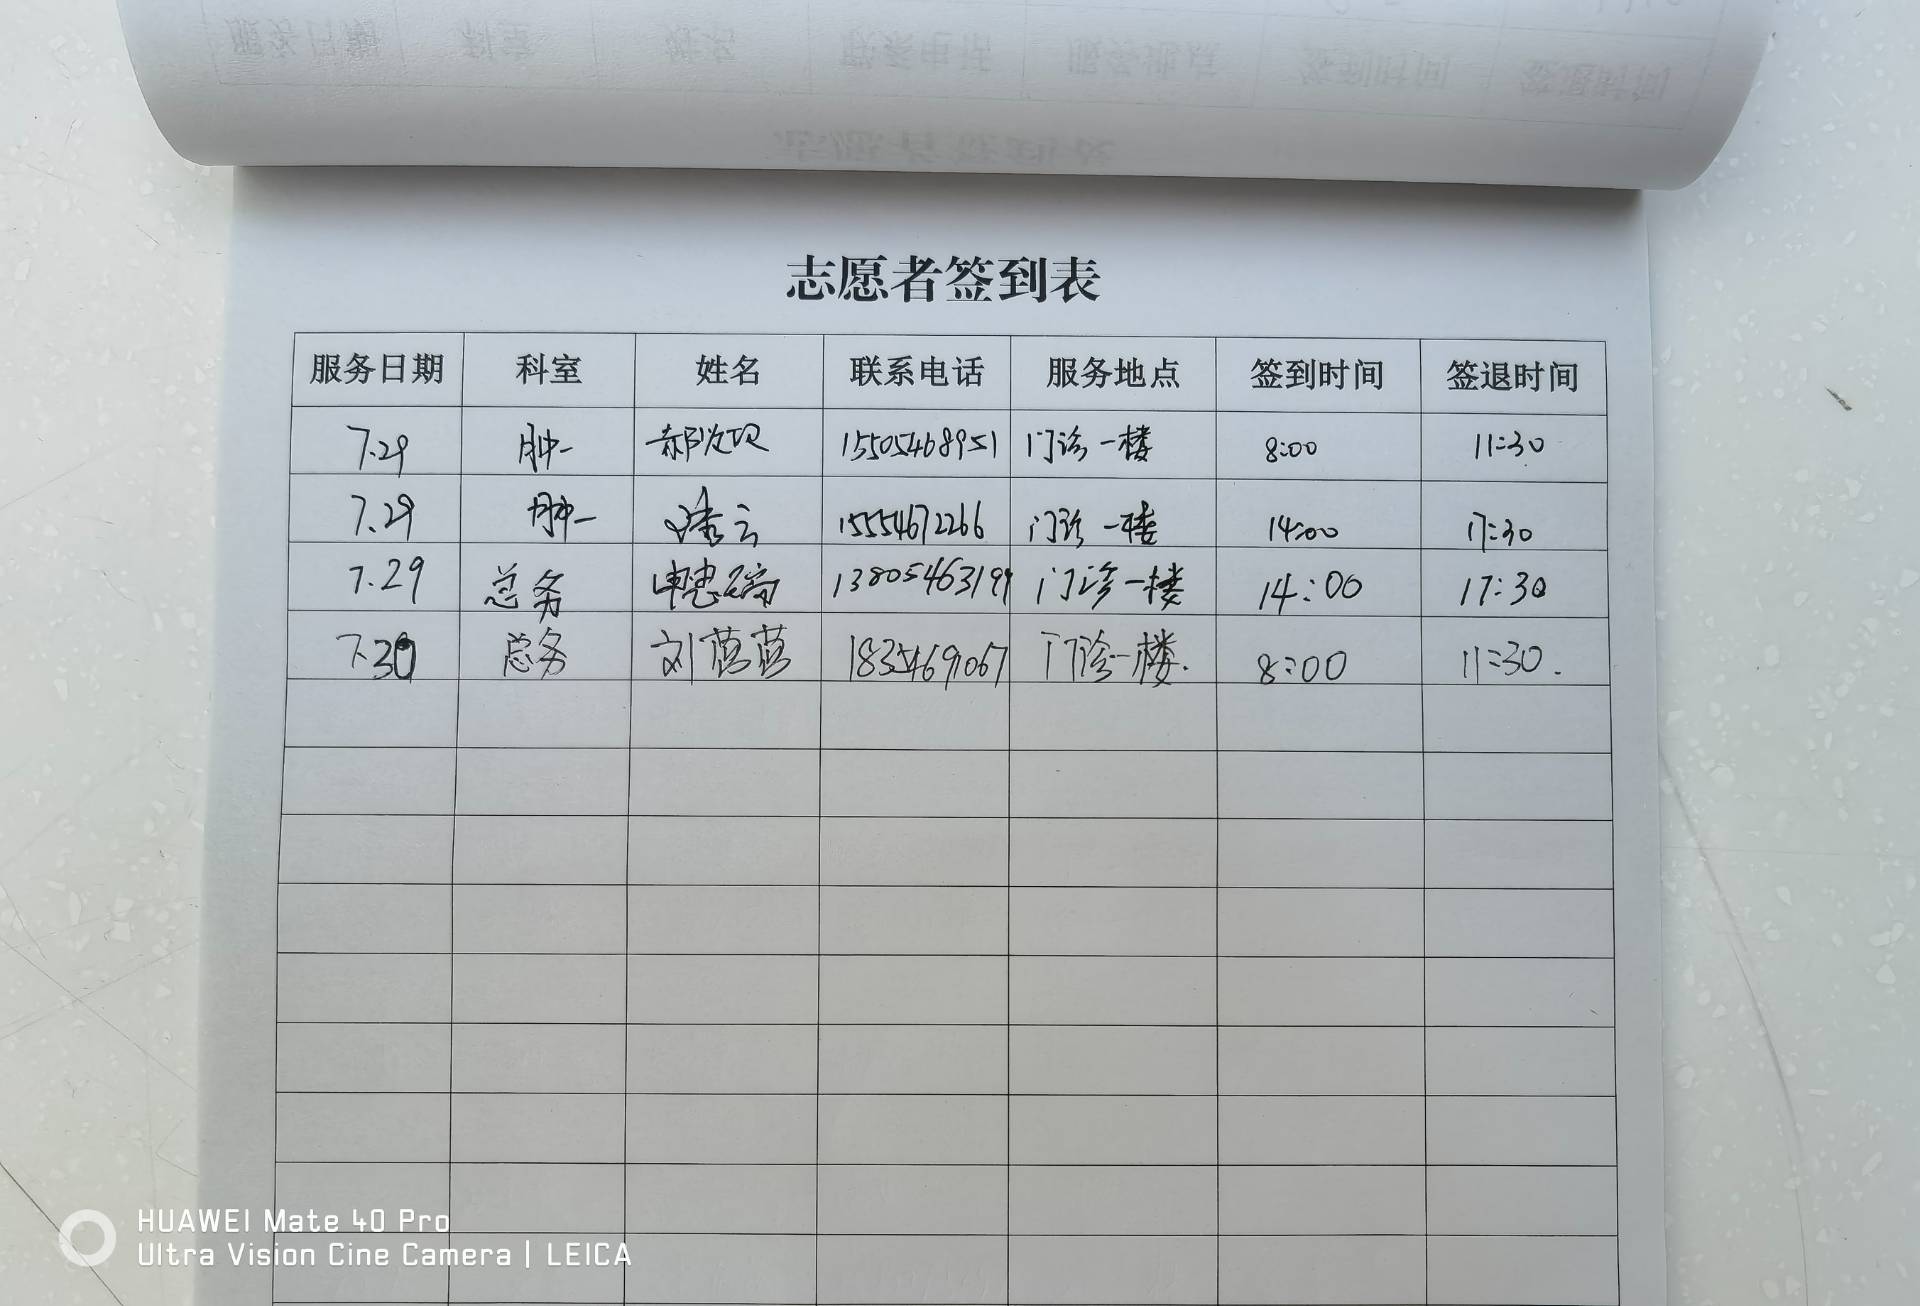 志愿者签到表
服务日期 科室 姓名 联系电话 服务地点 签到时间 签退时间
7.29 肿一 15505468951 门诊一楼 8:00 11:30
7.29 肿一 15554672266 门诊一楼 14:00 17:30
7.29 总务 门诊一楼 14:00 17:30
7.30 总务 刘蓓蓓 18354691067 门诊一楼. 8:00 11:30.
HUAWEI Mate 40 Pro
Ultra Vision Cine Camera | LEICA